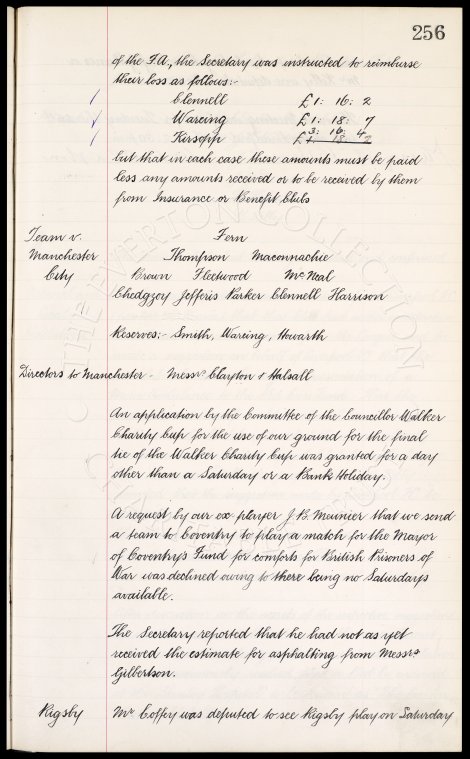 256
of the F.A., the Secretary was instructed to reimburse
their loss as follows:-
Clennell £1: 16: 2
Wareing £1: 18: 7
Kirsopp £ 3: 16: 4
but that in each case these amounts must be paid
less any amounts received or to be received by them
from Insurance or Benefit Clubs
Team v. Fern
Manchester Thompson Maconnachie
City Brown Fleetwood McNeal
Chedgzoy Jefferis Parker Clennell Harrison
Reserves:- Smith, Wareing, Howarth
Directors to Manchester - Messrs Clayton & Halsall
An application by the Committee of the Councillor Walker
Charity Cup for the use of our ground for the final
tie of the Walker Charity Cup was granted for a day
other than a Saturday or a Bank Holiday.
A request by our ex-player J. B. Meunier that we send
a team to Coventry to play a match for the Mayor
of Coventry's Fund for comforts for British Prisoners of
War was declined owing to there being no Saturdays
available.
The Secretary reported that he had not as yet
received the estimate for asphalting from Messrs
Gilbertson.
Rigsby Mr Coffey was deputed to see Rigsby play on Saturday
THE EVERTON COLLECTION